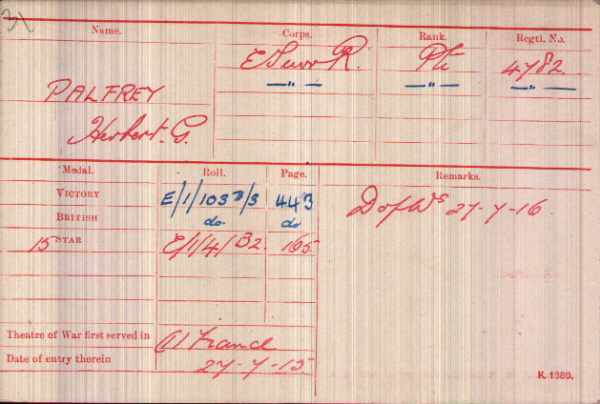 Name.
Corps.
Rank.
Regtl. No.
E Surr R.
Pte
4782.
— " —
— " —
— " —
PALFREY
Herbert. G.
Medal.
Roll.
Page.
Remarks.
VICTORY
E/1/103 B/3
443
BRITISH
do
do
15 STAR
E/1/4/B2.
165
D of Ws 27-7-16.
Theatre of War first served in
(1) France
Date of entry therein
27-7-15
K. 1380.